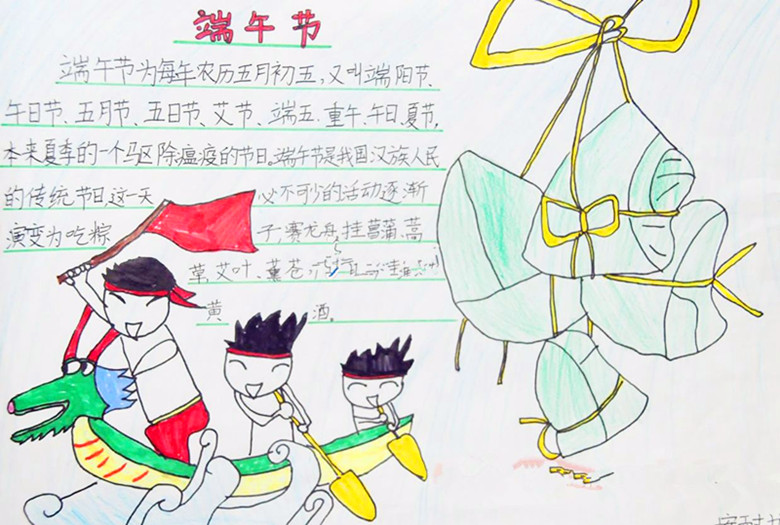 端午节
端午节为每年农历五月初五,又叫端阳节、
午日节、五月节、五日节、艾节、端五.重午、午日、夏节,
本来夏季的一个驱除瘟疫的节日.端午节是我国汉族人民
的传统节日.这一天 必不可少的活动逐渐
演变为吃粽 子,赛龙舟,挂菖蒲、蒿
草,艾叶、薰苍
黄 酒。